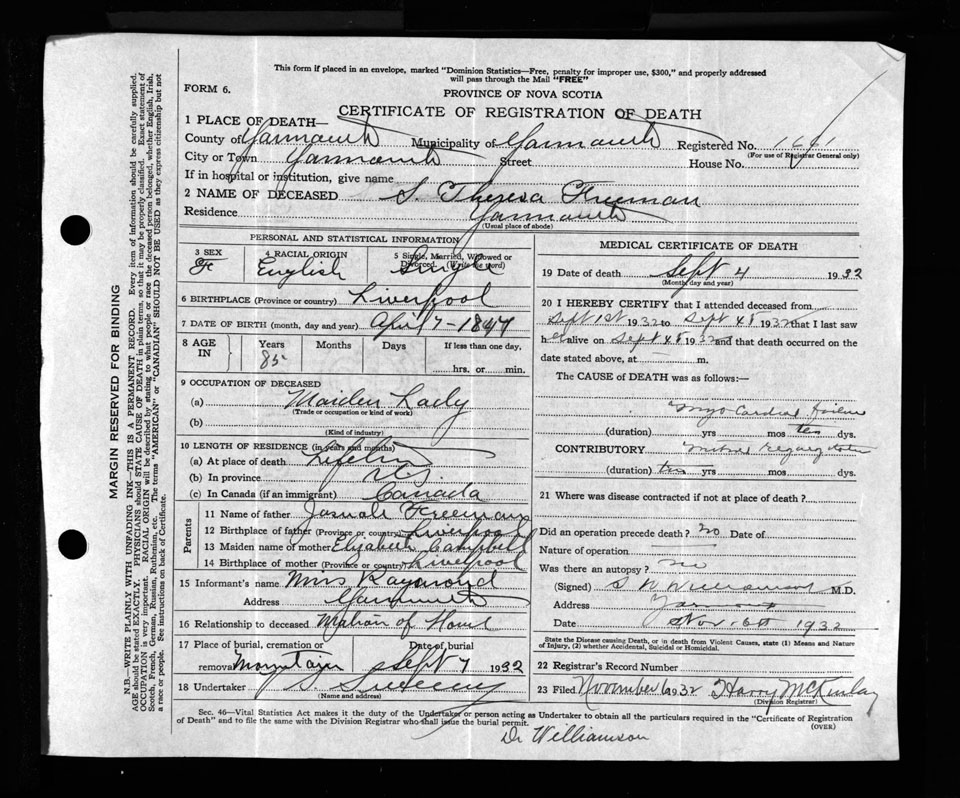 This form if placed in an envelope, marked "Dominion Statistics—Free, penalty for improper use, $300," and properly addressed
will pass through the Mail "FREE"
FORM 6.
PROVINCE OF NOVA SCOTIA
CERTIFICATE OF REGISTRATION OF DEATH
1 PLACE OF DEATH—
County of Yarmouth Municipality of Yarmouth Registered No. 1661
(For use of Registrar General only)
City or Town Yarmouth Street House No.
If in hospital or institution, give name
2 NAME OF DECEASED S. Theresa Freeman
Residence Yarmouth
(Usual place of abode)
PERSONAL AND STATISTICAL INFORMATION
3 SEX 4 RACIAL ORIGIN 5 Single, Married, Widowed or Divorced. (Write the word)
F English Single
6 BIRTHPLACE (Province or country) Liverpool
7 DATE OF BIRTH (month, day and year) April 7 - 1847
8 AGE IN Years Months Days If less than one day,
85 hrs. or min.
9 OCCUPATION OF DECEASED
(a) Maiden Lady
(Trade or occupation or kind of work)
(b)
(Kind of industry)
10 LENGTH OF RESIDENCE (in years and months)
(a) At place of death Lifetime
(b) In province
(c) In Canada (if an immigrant) Canada
Parents
11 Name of father Josuah Freeman
12 Birthplace of father (Province or country) Liverpool
13 Maiden name of mother Elizabeth Campbell
14 Birthplace of mother (Province or country) Liverpool
15 Informant's name Mrs Raymond
Address Yarmouth
16 Relationship to deceased Matron of Home
17 Place of burial, cremation or removal Date of burial
Mountain Sept 7 1932
18 Undertaker Sweeny
(Name and address)
MEDICAL CERTIFICATE OF DEATH
19 Date of death Sept 4 1932
(Month, day and year)
20 I HEREBY CERTIFY that I attended deceased from
Sept 1st 1932 to Sept 4th 1932 that I last saw
her alive on Sept 4th 1932 and that death occurred on the
date stated above, at — m.
The CAUSE of DEATH was as follows:—
Myo Cardial Failure
(duration) yrs mos ten dys.
CONTRIBUTORY Mitral Regurgitation
(duration) ten yrs mos dys.
21 Where was disease contracted if not at place of death?
Did an operation precede death? no Date of
Nature of operation
Was there an autopsy? no
(Signed) S W Williamson M.D.
Address Yarmouth
Date Nov. 6th 1932
State the Disease causing Death, or in death from Violent Causes, state (1) Means and Nature
of Injury, (2) whether Accidental, Suicidal or Homicidal.
22 Registrar's Record Number
23 Filed November 6 1932 Harry McKinlay
(Division Registrar)
Sec. 46—Vital Statistics Act makes it the duty of the Undertaker or person acting as Undertaker to obtain all the particulars required in the "Certificate of Registration
of Death" and to file the same with the Division Registrar who shall issue the burial permit.
(OVER)
Dr Williamson
MARGIN RESERVED FOR BINDING
N.B.—WRITE PLAINLY WITH UNFADING INK—THIS IS A PERMANENT RECORD. Every item of information should be carefully supplied.
AGE should be stated EXACTLY. PHYSICIANS should STATE CAUSE OF DEATH in plain terms, so that it may be properly classified. Exact statement of
OCCUPATION is very important. RACIAL ORIGIN will be described by stating to what people or race the deceased person belonged, whether English, Irish,
Scotch, French, German, Russian, Ruthenian, etc. The terms "AMERICAN" or "CANADIAN" SHOULD NOT BE USED as they express citizenship but not
a race or people. See instructions on back of Certificate.